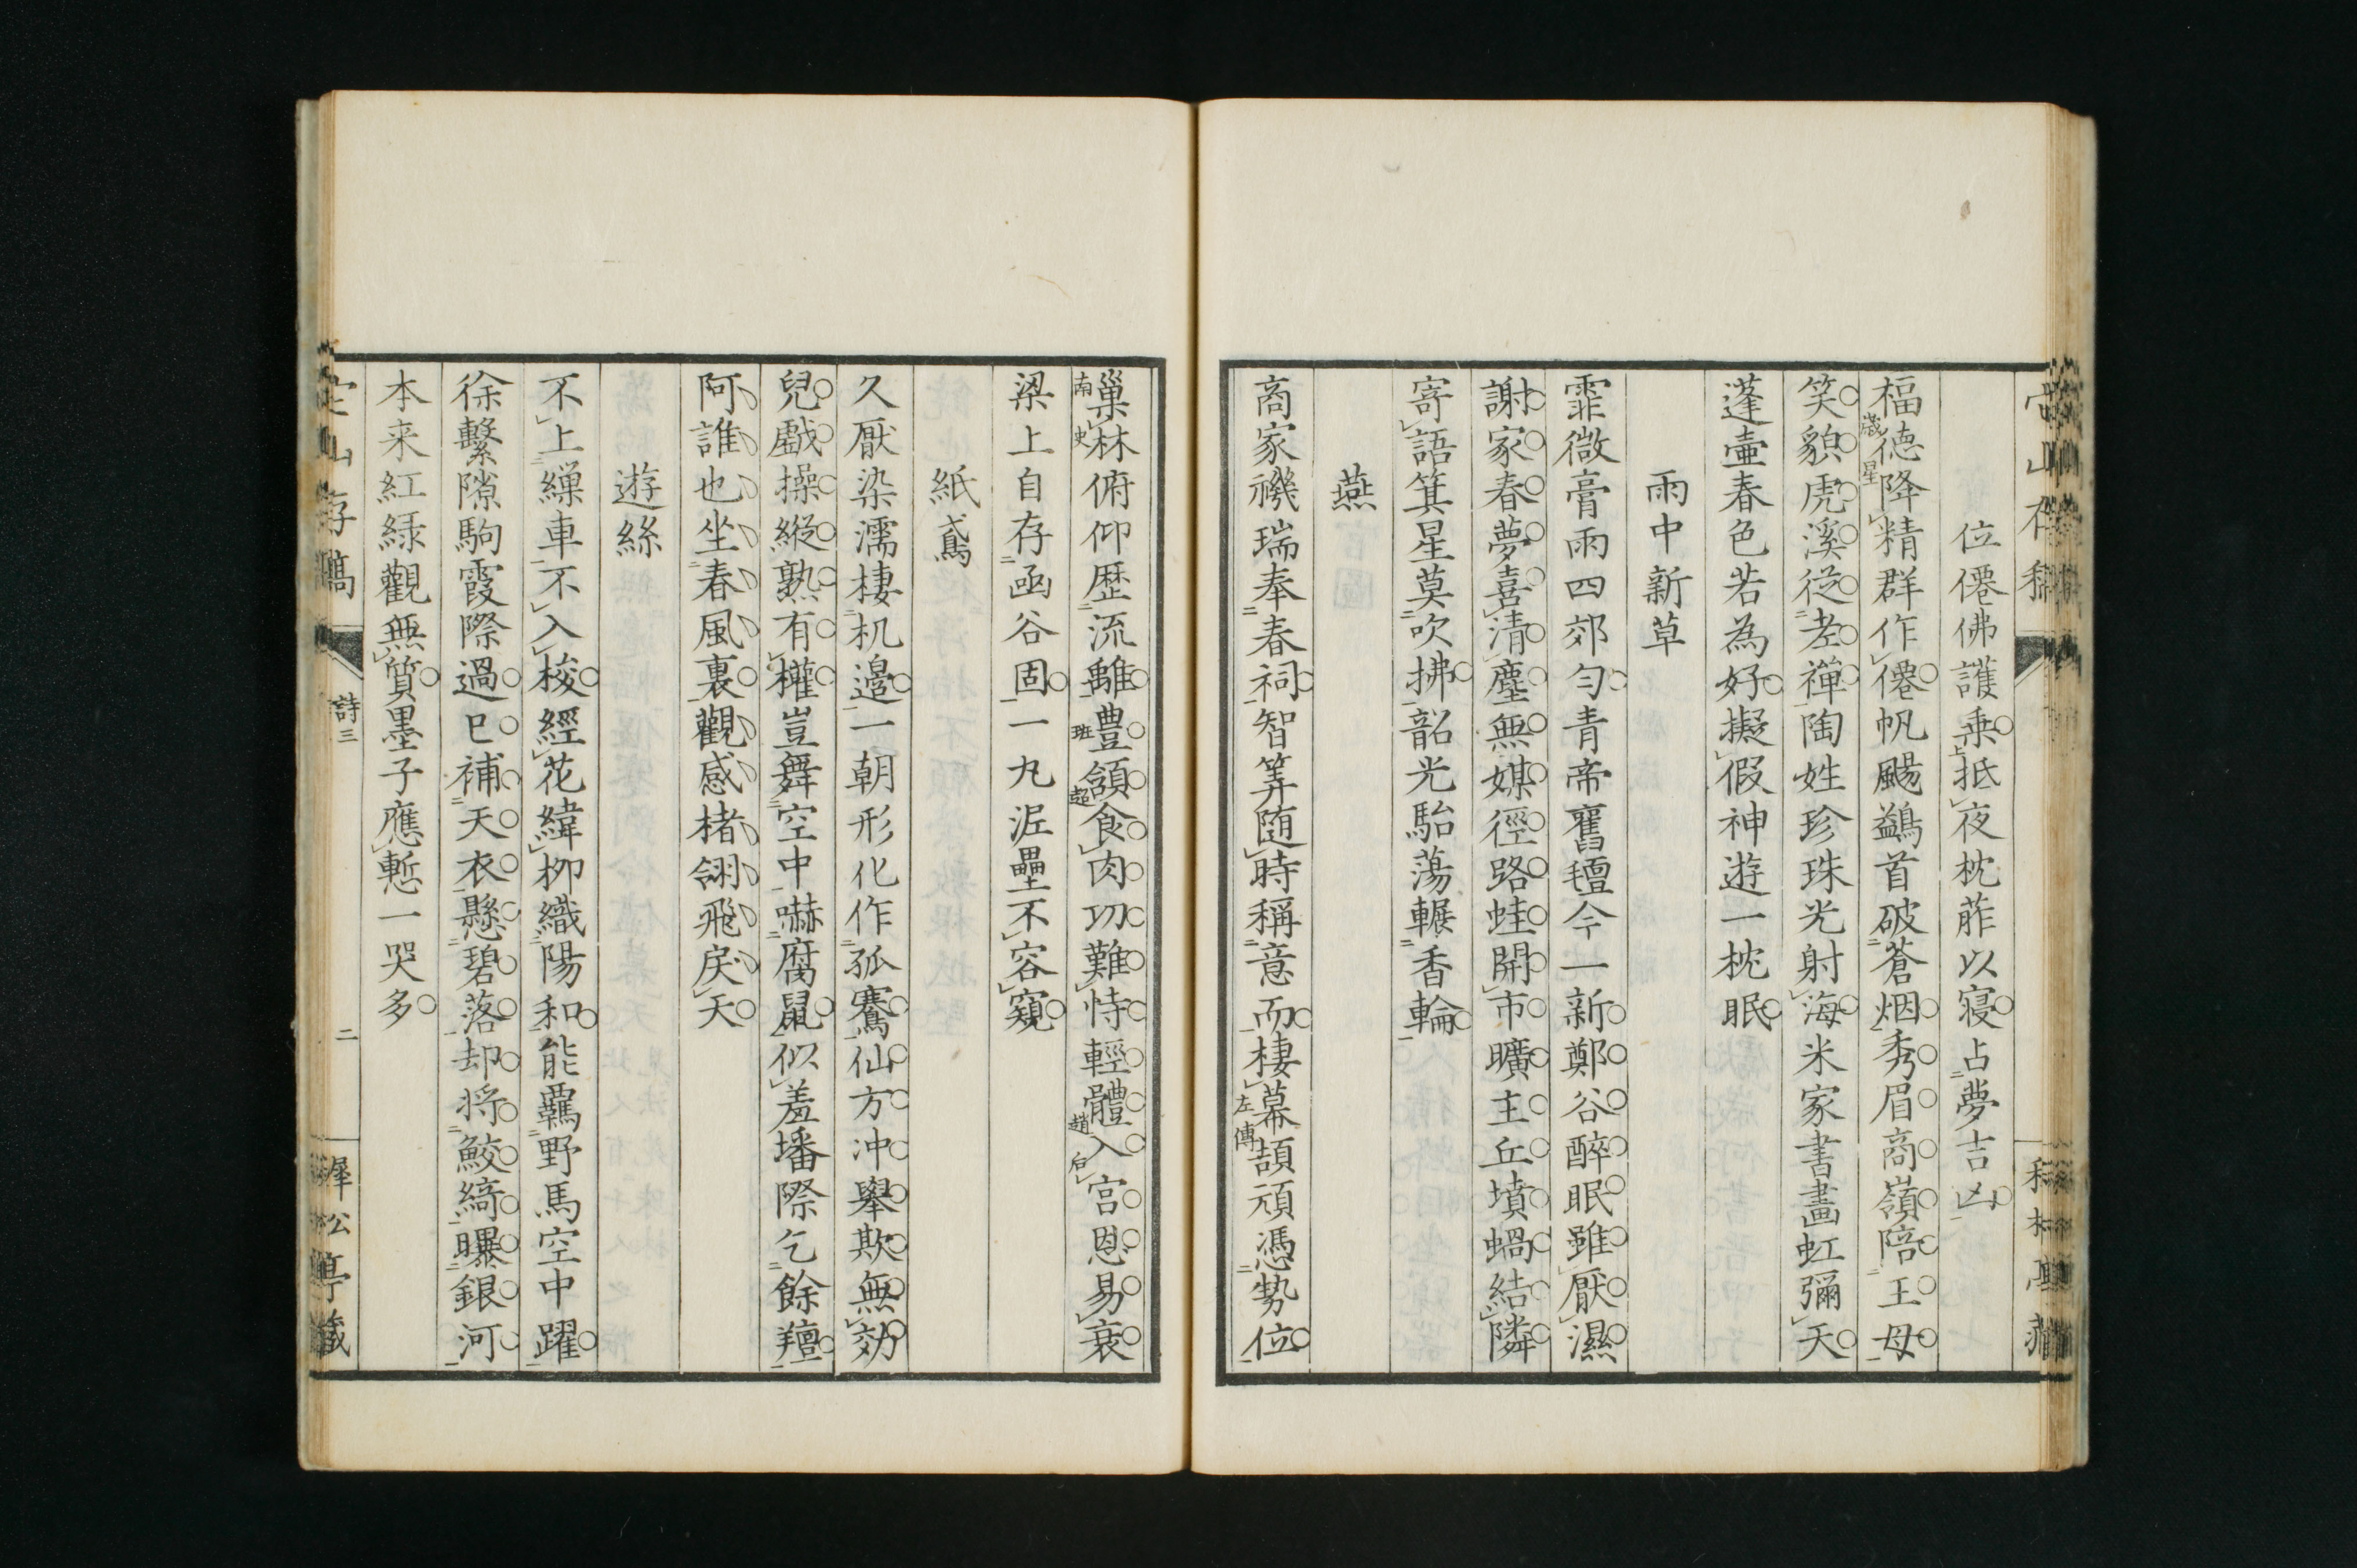 位僊佛護乗抵夜枕葄以寝占夢吉凶
福徳歳星降精群作僊帆颺鷁首破蒼烟秀眉商嶺陪王母
笑貌虎溪従老禅陶姓珍珠光射海米家書畫虹彌天
蓬壷春色若為好擬假神遊一枕眠
雨中新草
霏微膏雨四郊勻青帝舊氊今一新鄭谷醉眠雖厭濕
謝家春夢喜清塵無媒徑路蛙開市曠主丘墳蝸結隣
寄語箕星莫吹拂韶光駘蕩輾香輪
燕
商家禨瑞奉春祠智筭随時稱意而棲幕左傳頡頏憑勢位
巢南史林俯仰歴流離豊班頷超食肉功難恃輕體趙入后宮恩易衰
梁上自存函谷固一丸泥壘不容窺
紙鳶
久厭染濡棲机邉一朝形化作孤騫仙方冲舉欺無効
兒戯操縦熟有權豈舞空中嚇腐鼠似羞墦際乞餘羶
阿誰也坐春風裏觀感楮翎飛戻天
遊絲
不上繅車不入梭經花緯柳織陽和能羈野馬空中躍
徐繫隙駒霞際過巳補天衣懸碧落却将鮫綺曝銀河
本来紅緑觀無質墨子應慙一哭多
定山存稿 詩三 二 犀松亭藏